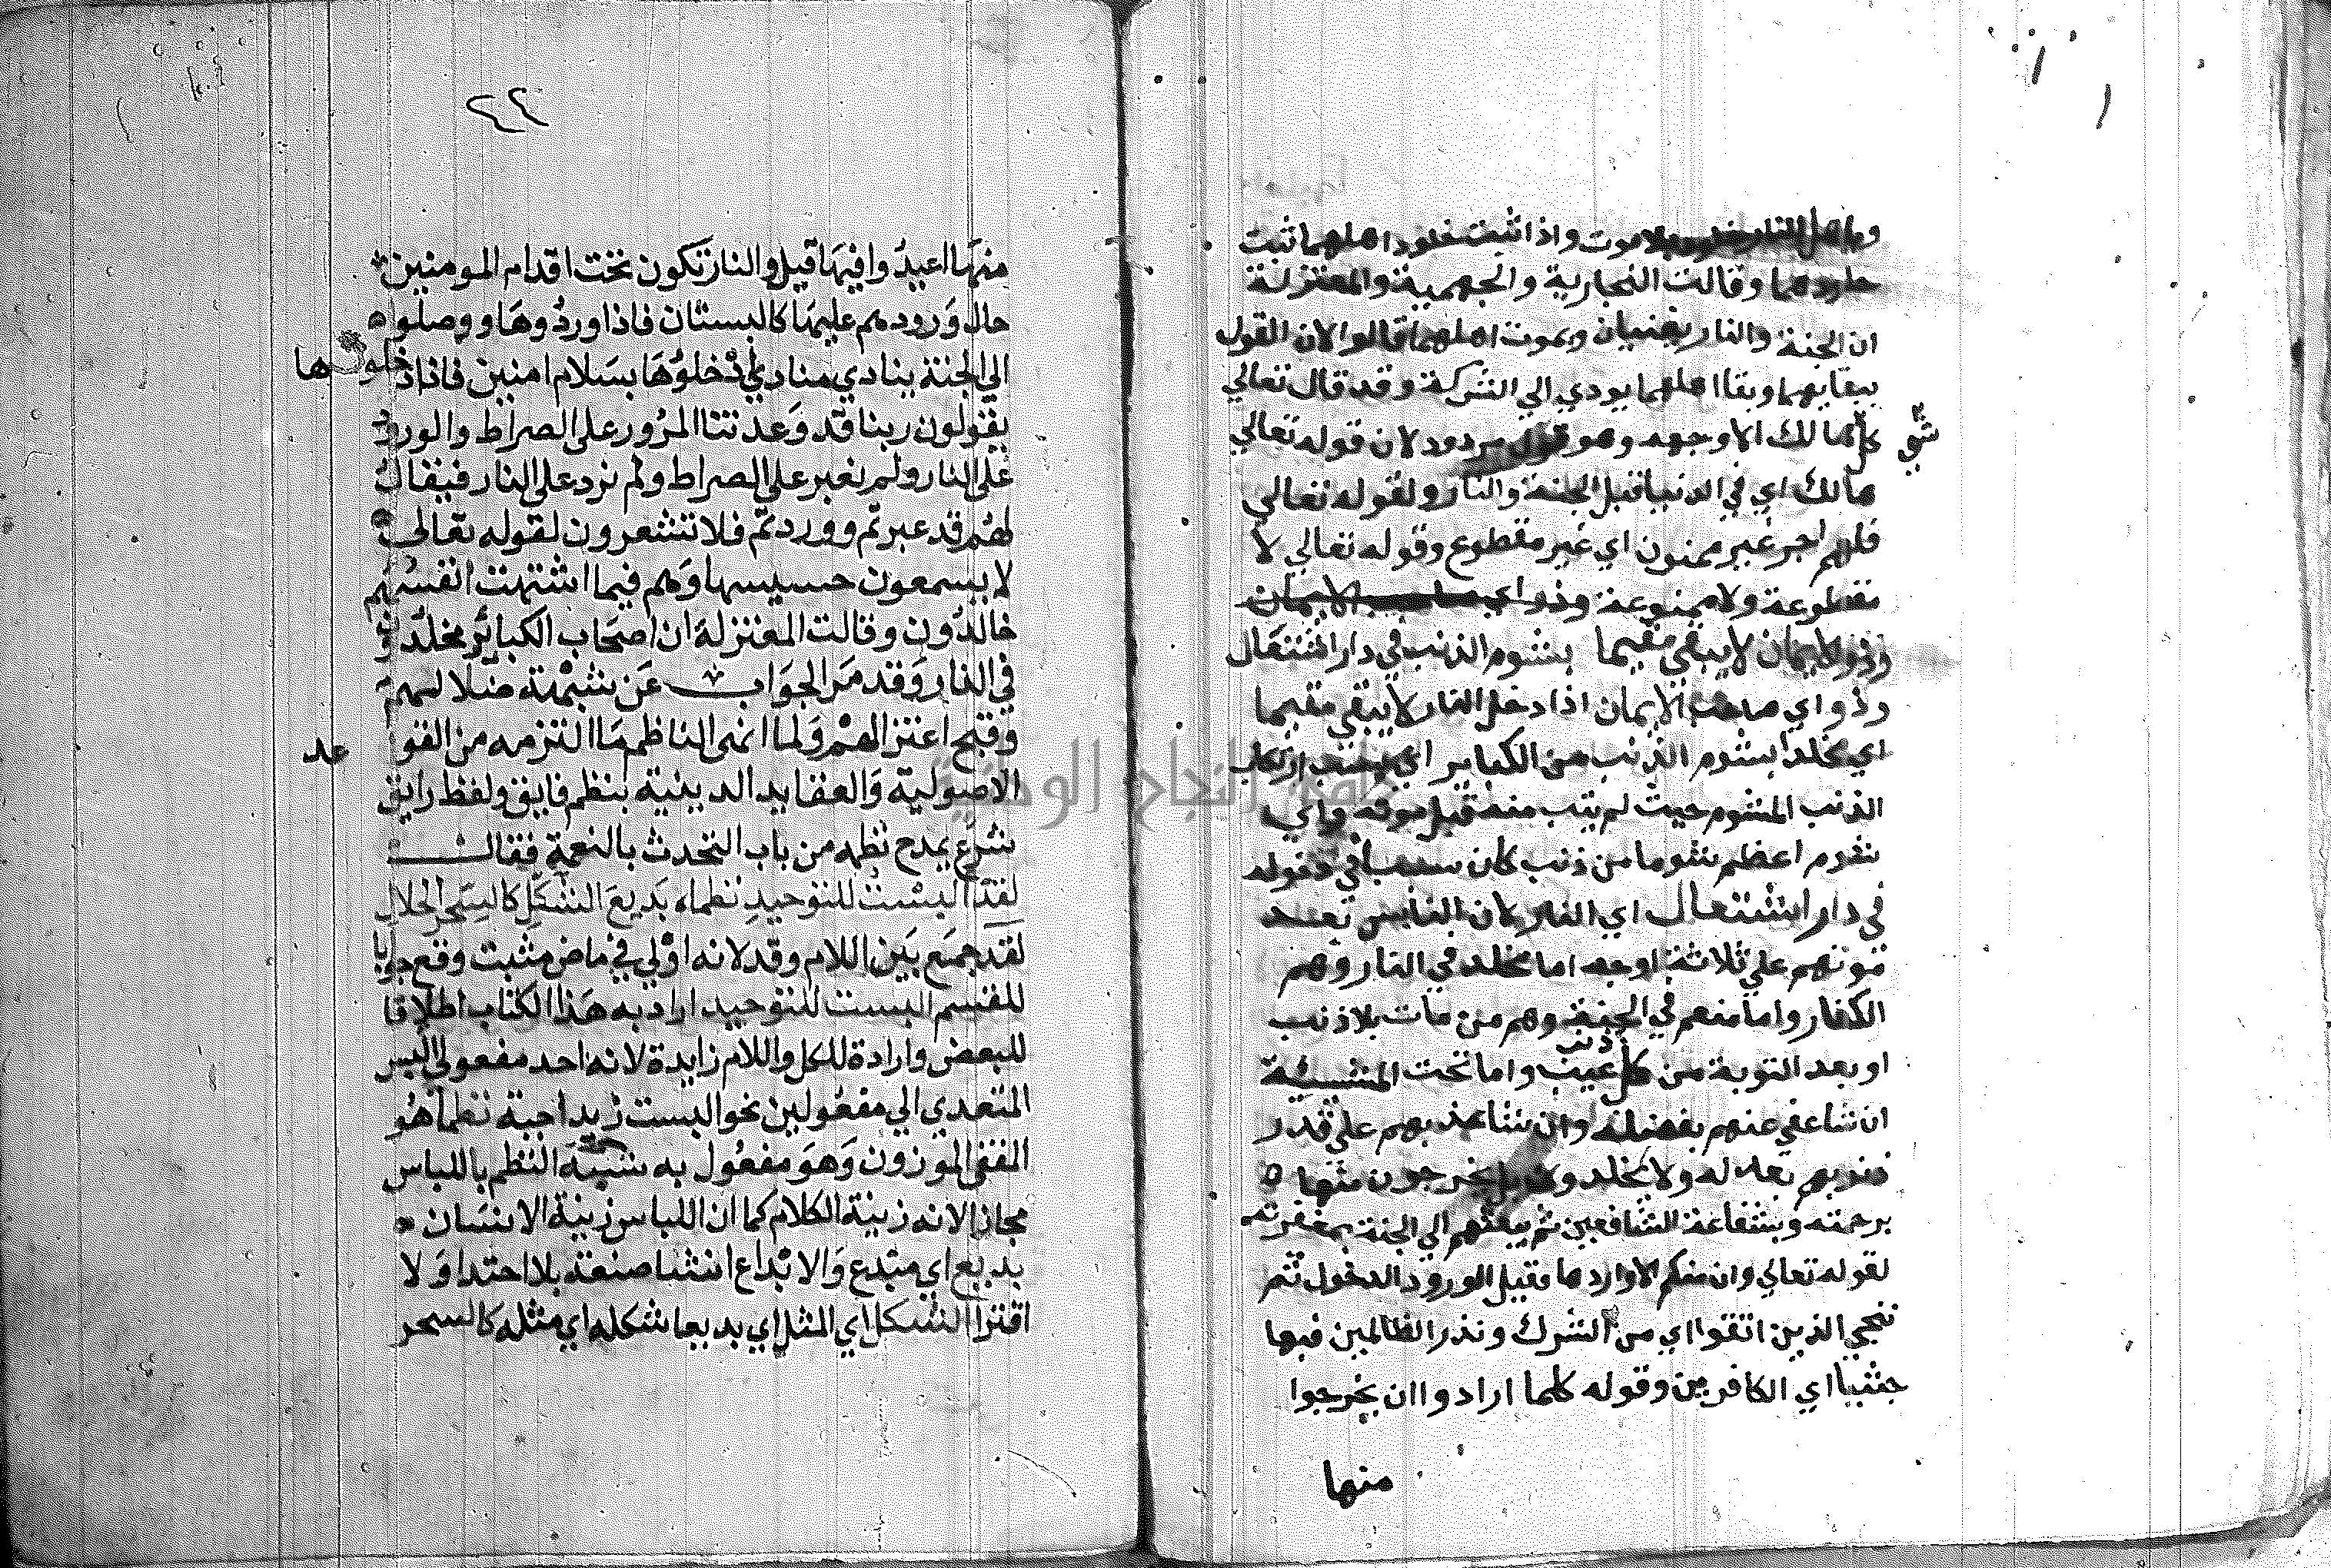 واذا ثبت خلود اهلهما ثبت
خلودهما وقالت النجارية والجهمية والمعتزلة
ان الجنة والنار يفنيان ويموت اهلهما قالوا لان القول
ببقايهما وبقا اهلهما يودي الي الشركة وقد قال تعالي
كل هالك الا وجهه وهو قول مردود لان قوله تعالي
شي
هالك اي في الدنيا قبل الجنة والنار ولقوله تعالي
فلهم اجر غير ممنون اي غير مقطوع وقوله تعالي لا
مقطوعة ولا ممنوعة وذو اي صاحب الايمان
وذو الايمان لا يبقي مقيما بشوم الذنب في دار اشتعال
وذو اي صاحب الايمان اذا دخل النار لا يبقي مقيما
اي مخلدا بشوم الذنب من الكباير اي بسبب ارتكاب
الذنب المشوم حيث لم يتب منه قبل موته واي
شوم اعظم شوما من ذنب كان سببا في دخوله
في دار اشتعال اي النار لان الناس بعد
موتهم علي ثلاثة اوجه اما مخلد في النار وهم
الكفار واما منعم في الجنة وهم من مات بلا ذنب
او بعد التوبة من كل عيب واما تحت المشيئة
ذنب
ان شا عفي عنهم بفضله وان شا عذبهم علي قدر
ذنوبهم بعدله ولا يخلدون بل يخرجون منها
برحمته وبشفاعة الشافعين ثم يبعثهم الي الجنة بمغفرته
لقوله تعالي وان منكم الا واردها فقيل الورود الدخول ثم
ننجي الذين اتقوا اي من الشرك ونذر الظالمين فيها
جثيا اي الكافرين وقوله كلما ارادوا ان يخرجوا
منها
٢٢
منها اعيدوا فيها قيل والنار تكون تحت اقدام المومنين
حال ورودهم عليها كالبستان فاذا وردوها ووصلوا
الي الجنة ينادي منادي ادخلوها بسلام امنين فاذا دخلوها
يقولون ربنا قد وعدتنا المرور علي الصراط والورود
علي النار ولم نعبر علي الصراط ولم نرد علي النار فيقال
لهم قد عبرتم ووردتم فلا تشعرون لقوله تعالي
لا يسمعون حسيسها وهم فيما اشتهت انفسهم
خالدون وقالت المعتزلة ان اصحاب الكبائر مخلدون
في النار وقد مر الجواب عن شبهة ضلالهم
وقبح اعتزالهم ولما انهى الناظم ما التزمه من القواعد
الاصولية والعقايد الدينية بنظم فايق ولفظ رايق
شرع يمدح نظمه من باب التحدث بالنعمة فقال
لقد البست للتوحيد نظما بديع الشكل كالسحر الحلال
لقد جمع بين اللام وقد لانه اولي في ماض مثبت وقع جوابا
للقسم البست للتوحيد اراد به هذا الكتاب اطلاقا
للبعض وارادة للكل واللام زايدة لانه احد مفعولي البس
المتعدي الي مفعولين نحو البست زيدا جبة نظما هو
المقفى الموزون وهو مفعول به شبه النظم باللباس
مجازا لانه زينة الكلام كما ان اللباس زينة الانسان
بديع اي مبتدع والابداع انشا صنعة بلا احتدا ولا
اقتدا الشكل اي المثل اي بديعا شكله اي مثله كالسحر